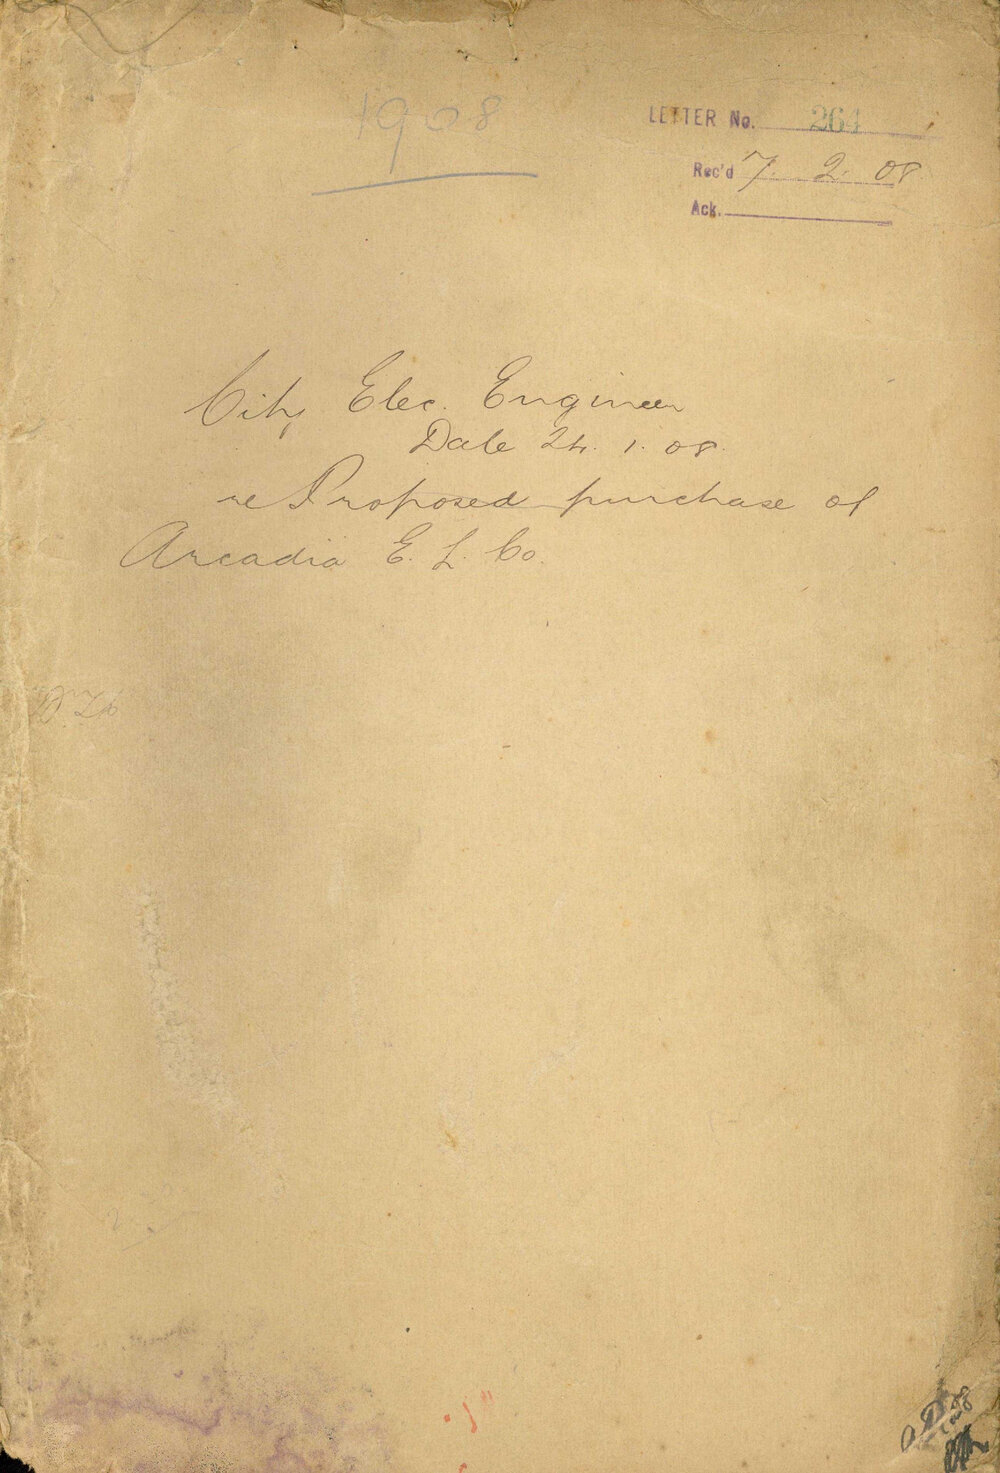 1908
LETTER No. 264
Rec'd 7. 2. 08
Ack.
City Elec. Engineer
Date 24. 1. 08.
re Proposed purchase of
Arcadia E. L. Co.